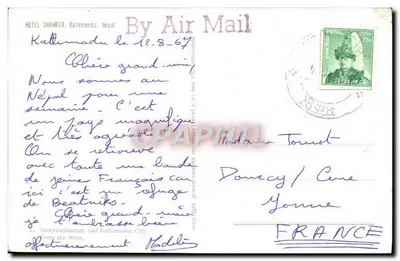 HOTEL SHANKER, Kathmandu, Nepal
By Air Mail
Kathmandu le 12.8.67
Chère grand-mère
Nous sommes au
Népal pour une
semaine. C'est
un pays magnifique
et très agréable
On se retrouve
avec toute une bande
de jeunes Français car
ici c'est un refuge
de Beatniks.
Chère grand-mère
je t'embrasse bien
affectueusement
Swayambhunath and Kathmandu City
from the West.
NEPAL
Madame
Donecy / Cure
Yonne
FRANCE